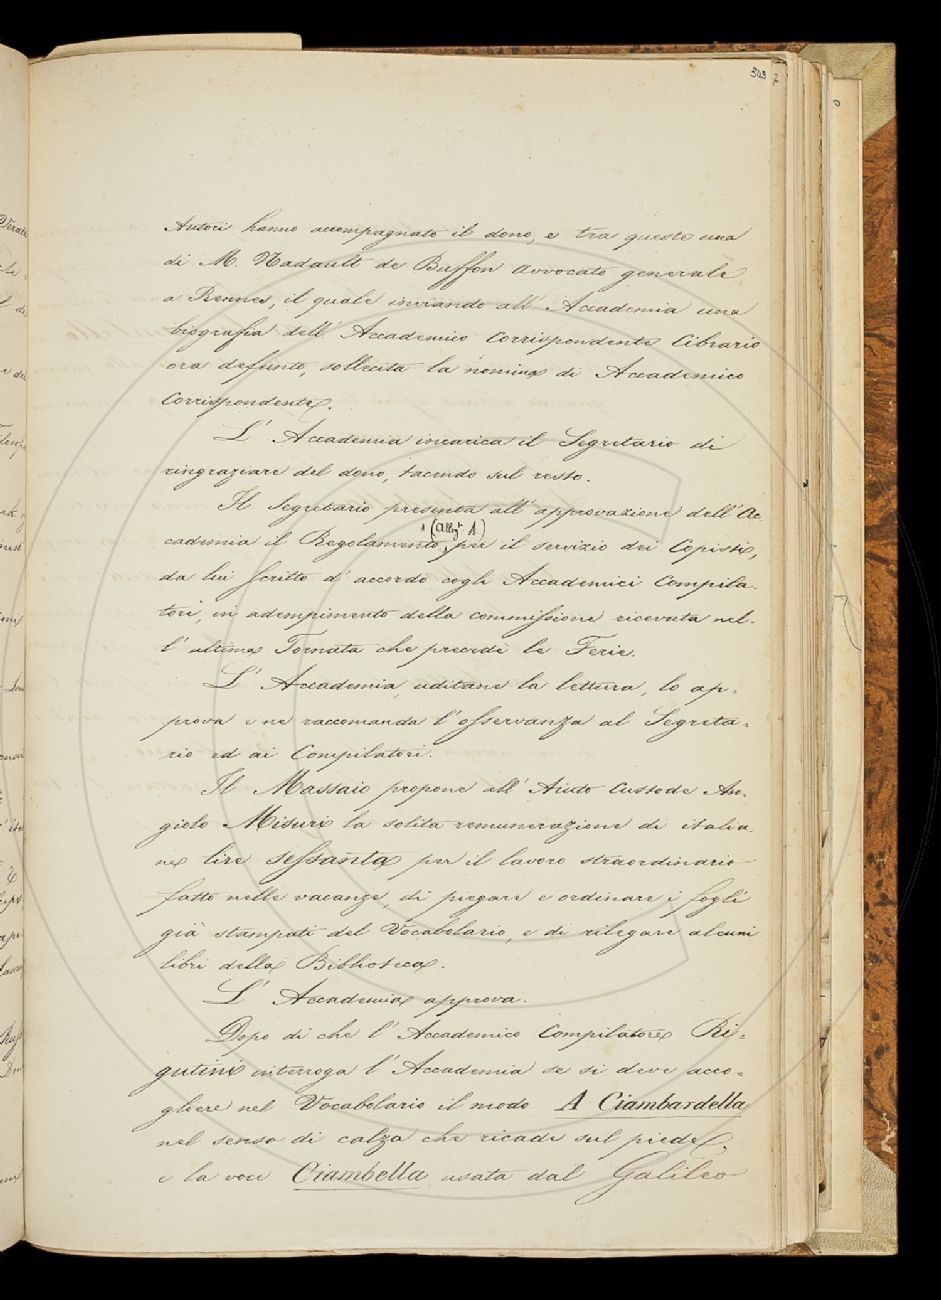 303 7
Autori hanno accompagnato il dono, e tra queste una
di M. Nadault de Buffon avvocato generale,
a Rennes, il quale inviando all' Accademia una
biografia dell' Accademico Corrispondente Cibrario
ora defunto, sollecita la nomina di Accademico
Corrispondente.
L' Accademia incarica il Segretario di
ringraziare del dono, tacendo sul resto.
Il Segretario presenta all' approvazione dell' Ac-
(alleg.to A)
cademia il Regolamento per il servizio dei Copisti,
da lui scritto d' accordo cogli Accademici Compila-
tori, in adempimento della commissione ricevuta nel-
l' ultima Tornata che precedè le Ferie.
L' Accademia, uditane la lettura, lo ap-
prova e ne raccomanda l' osservanza al Segreta-
rio ed ai Compilatori.
Il Massaio propone all' Aiuto Custode An-
giolo Misuri la solita remunerazione di italia-
ne lire sessanta per il lavoro straordinario
fatto nelle vacanze, di piegare e ordinare i fogli
già stampati del Vocabolario, e di rilegare alcuni
libri della Biblioteca.
L' Accademia approva.
Dopo di che l' Accademico Compilatore Ri-
gutini interroga l' Accademia se si deve acco-
gliere nel Vocabolario il modo A Ciambardella
nel senso di calza che ricade sul piede,
e la voce Ciambella usata dal Galileo